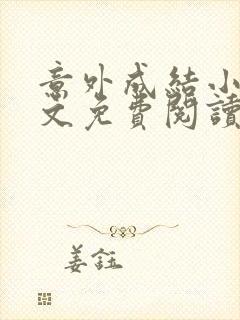 意外成結小
文免費閱讀
姜鈺